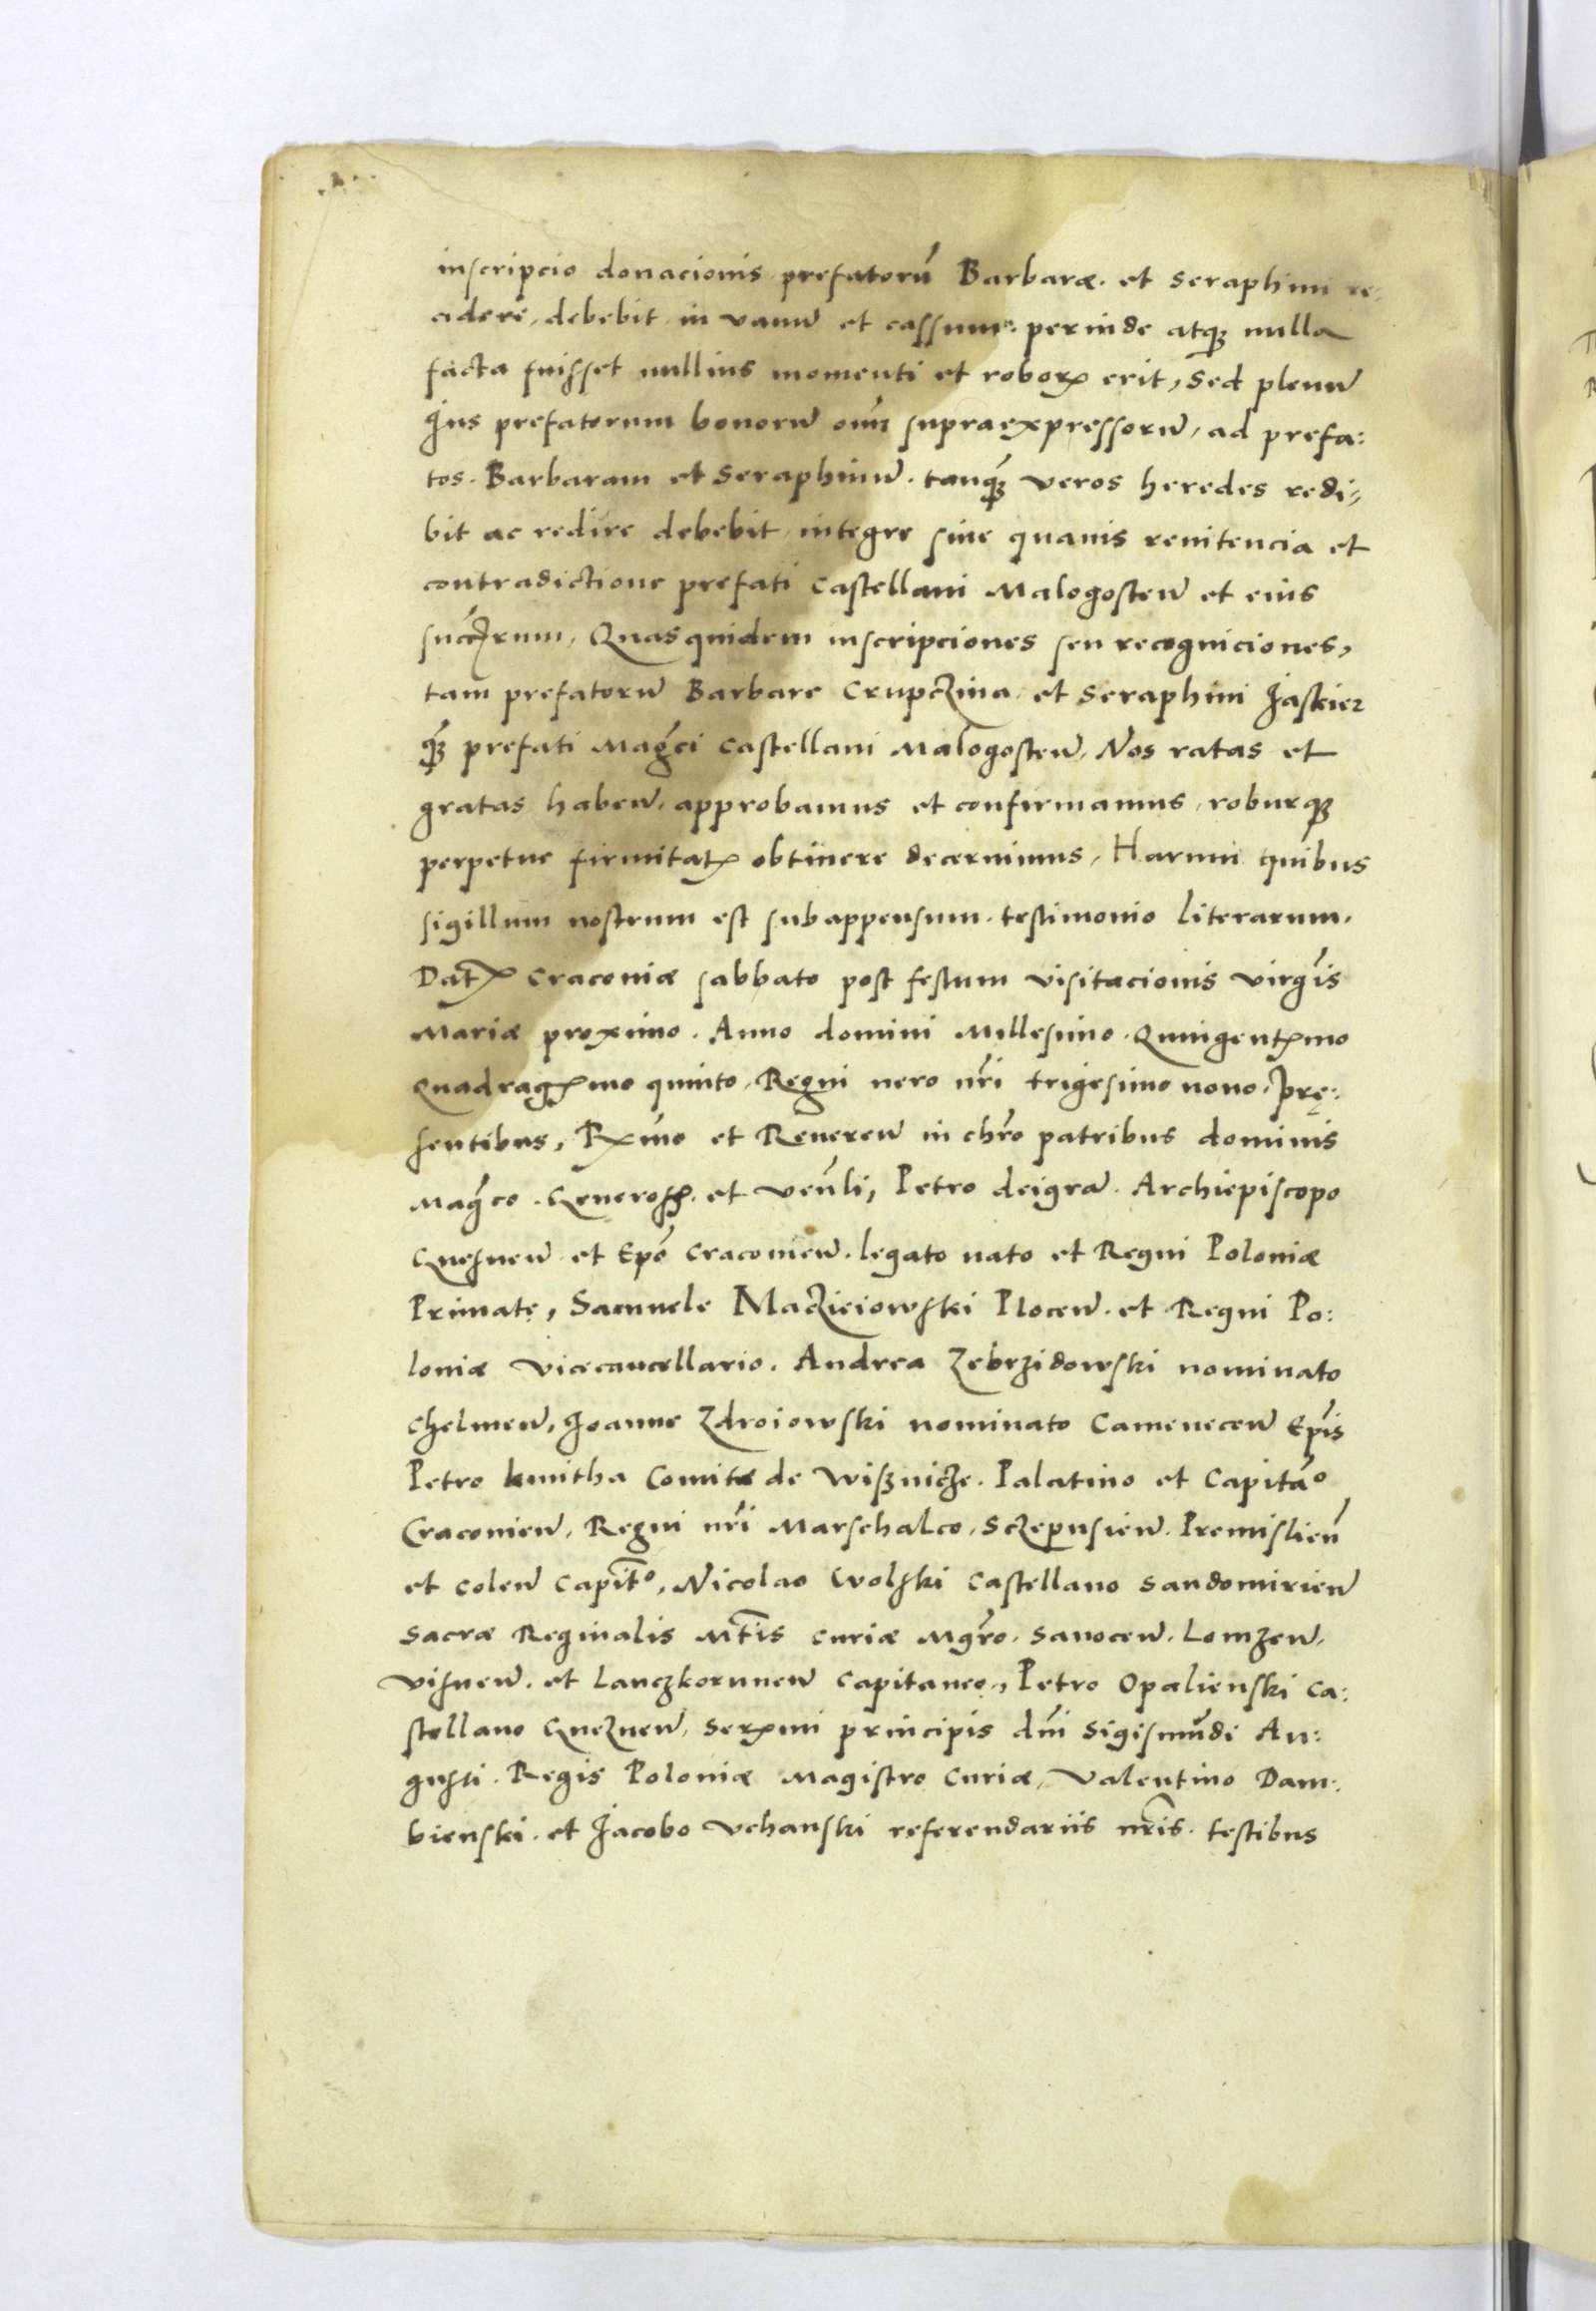 inscripcio donacionis prefatorū Barbaræ. et Seraphini re:
cidere, debebit in vanu̅ et cassum: perinde atq; nulla
facta fuisset nullius momenti et roboꝝ erit, Sed plenu̅
Jus prefatorum bonoru̅ oīm supraexpressoru̅, ad prefa:
tos. Barbaram et Seraphinu̅. tanq̄ veros heredes redi,
bit ac redire debebit integre sine quauis renitencia et
contradictione prefati Castellani Malogosten̅ et eius
succ̄rum, Quasquidem inscripciones seu recogniciones,
tam prefatoru̅ Barbare Crupczina et Seraphini Jaskier
q̄ prefati Mag̅ci Castellani Malogosten̅, Nos ratas et
gratas haben̅. approbamus et confirmamus, roburq;
perpetue firmitatꝭ obtinere decernimus, Harum quibus
sigillum nostrum est subappensum. testimonio literarum.
Datꝭ Craconiæ sabbato post festum visitacionis virg̅is
Mariæ proximo. Anno domini Millesimo. Quingentꝭmo
Quadragꝭmo quinto, Regni vero nr̄i trigesimo nono. Prę:
sentibus, Rꝭmo et Reueren̅ in chr̄o patribus dominis
mag̅co. Generosꝭ. et Ven̅li, Petro deigra̅. Archiepiscopo
Gnesnen̅ et Ep̄o Cracouien̅. legato nato et Regni Poloniæ
Primate, Samuele Maczieiowski Plocen̅. et Regni Po:
loniæ Vicecancellario. Andrea Zebrzidowski nominato
Chelmen̅, Joanne Zdroiowski nominato Camenecen̅ Ep̄is
Petro kmitha Comite de Wißnicze. Palatino et Capita̅o
Cracouien̅, Regni nr̄i Marschalco, Sczepusien̅. Premislien̅
et Colen̅ Capit̅o, Nicolao Wolski Castellano Sandomirien̅
Sacræ Reginalis Mt̄is curiæ Mgr̄o. Sanocen̅. Lomzen̅.
Visnen̅. et Lanczkorunen̅ Capitaneo, Petro Opalienski Ca:
stellano Gneznen̅, Serꝭmi principis dn̄i Sigismu̅di Au:
gusti. Regis Poloniæ Magistro Curiæ, Valentino Dam:
bienski. et Jacobo Vchanski referendariis nr̄is. testibus